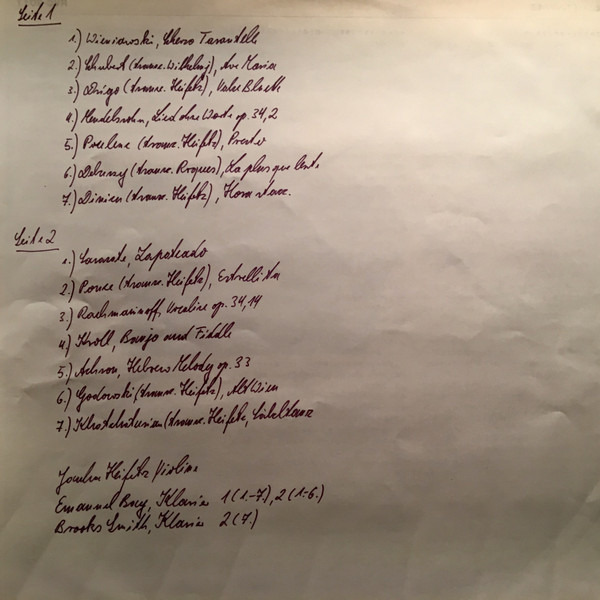 Seite 1
1.) Wieniawski, Scherzo Tarantelle
2.) Schubert (transc. Wilhelmj), Ave Maria
3.) Drigo (transc. Heifetz), Valse Bluette
4.) Mendelssohn, Lied ohne Worte op. 34,2
5.) Poulenc (transc. Heifetz), Presto
6.) Debussy (transc. Roques), La plus que lente
7.) Dinicu (transc. Heifetz), Hora staccato
Seite 2
1.) Sarasate, Zapateado
2.) Ponce (transc. Heifetz), Estrellita
3.) Rachmaninoff, Vocalise op. 34,14
4.) Kroll, Banjo and Fiddle
5.) Achron, Hebrew Melody op. 33
6.) Godowski (transc. Heifetz), Alt Wien
7.) Khatchaturian (transc. Heifetz, Säbeltanz
Jascha Heifetz Violine
Emanuel Bay, Klavier 1 (1.-7.), 2 (1.-6.)
Brooks Smith, Klavier 2 (7.)